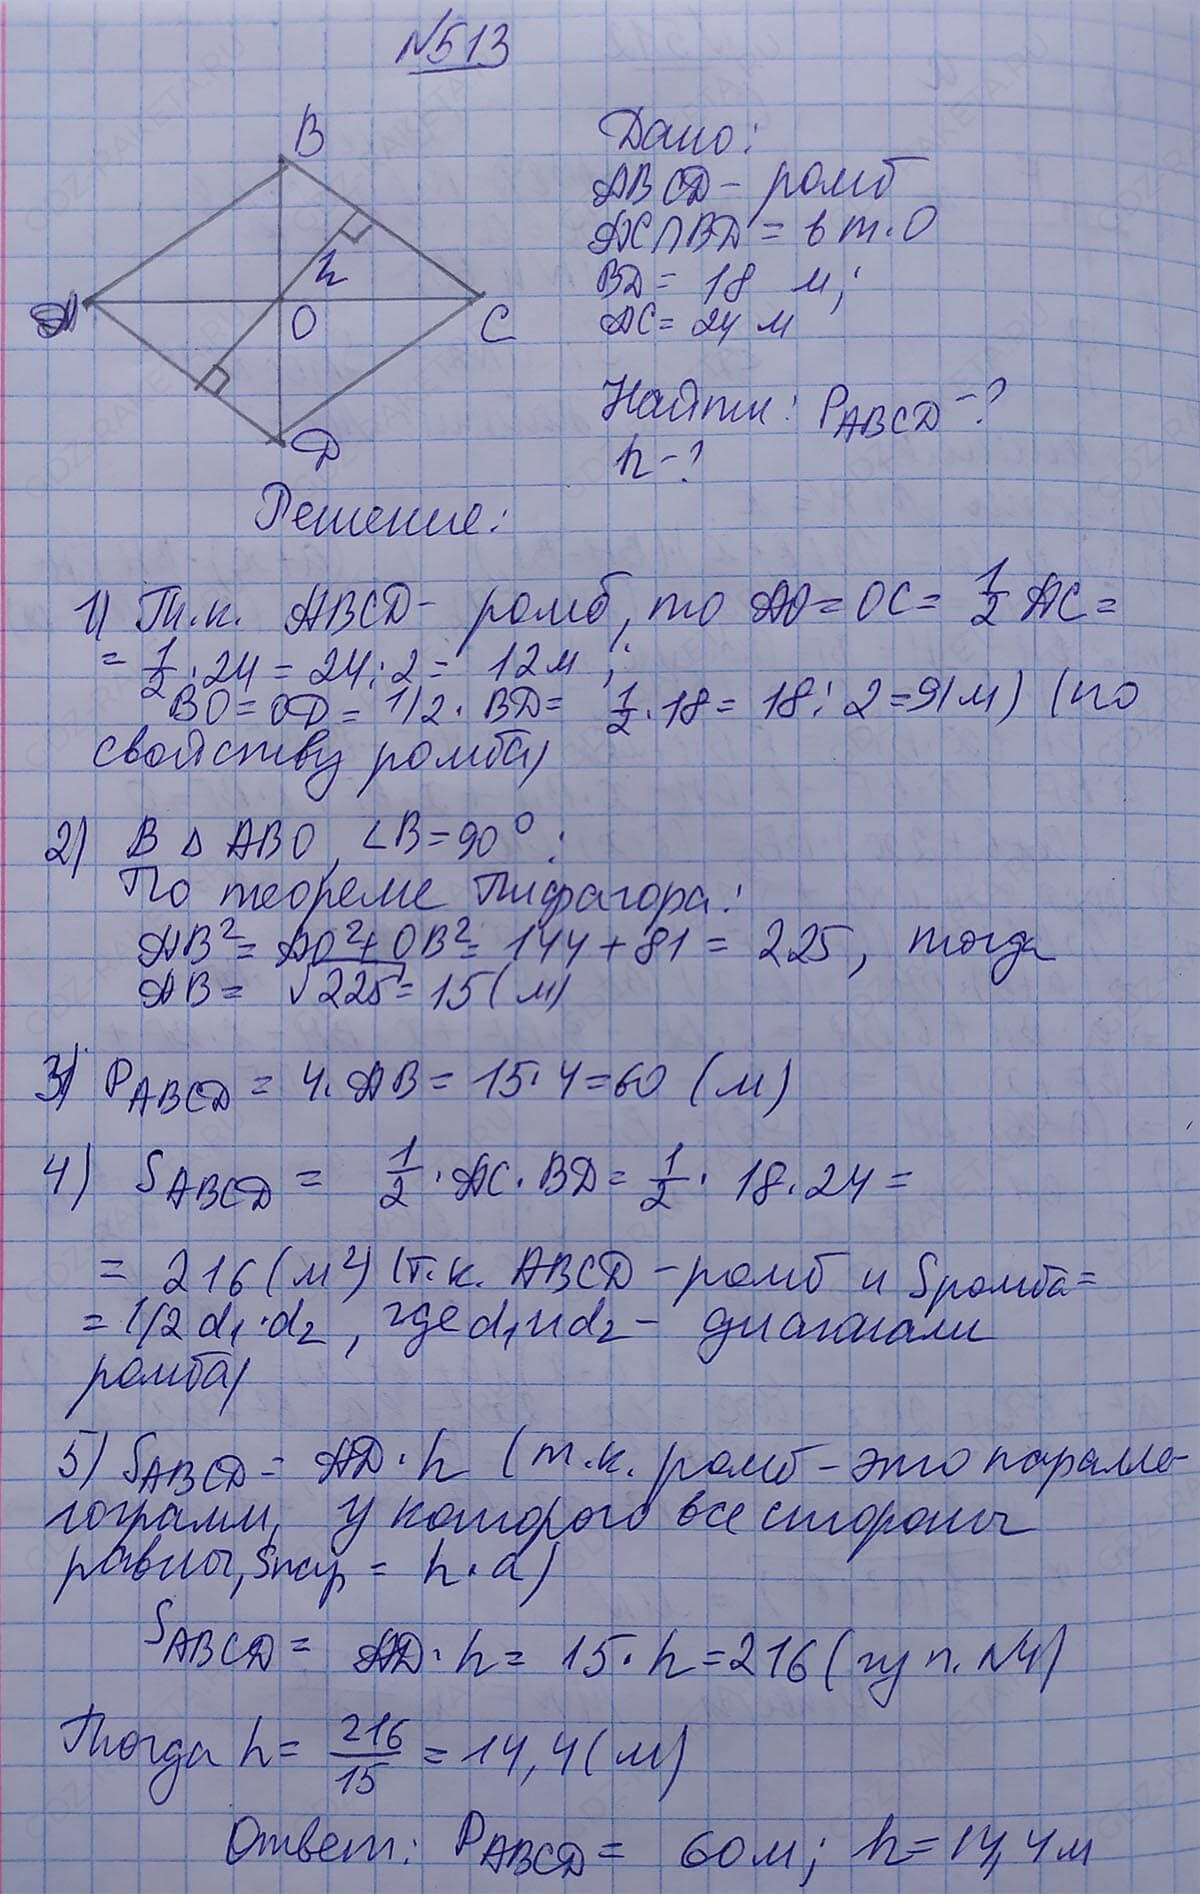 №513
B
h
A
O
C
D
Дано:
ABCD - ромб
AC∩BD = в т.О
BD = 18 м;
AC = 24 м
Найти: P_ABCD - ?
h - ?
Решение:
1) Т.к. ABCD - ромб, то AO = OC = 1/2 AC =
= 1/2 · 24 = 24 : 2 = 12 м;
BO = OD = 1/2 · BD = 1/2 · 18 = 18 : 2 = 9(м) (по
свойству ромба)
2) В △ ABO, ∠B = 90°:
По теореме Пифагора:
AB² = AO² + OB² = 144 + 81 = 225, тогда
AB = √225 = 15 (м)
3) P_ABCD = 4 · AB = 15 · 4 = 60 (м)
4) S_ABCD = 1/2 · AC · BD = 1/2 · 18 · 24 =
= 216 (м²) (т.к. ABCD - ромб и Sромба =
= 1/2 d₁ · d₂, где d₁ и d₂ - диагонали
ромба)
5) S_ABCD = AD · h (т.к. ромб - это паралле-
лограмм, у которого все стороны
равны, Sпар = h · a)
S_ABCD = AD · h = 15 · h = 216 (из п. №4)
Тогда h = 216/15 = 14,4 (м)
Ответ: P_ABCD = 60 м; h = 14,4 м